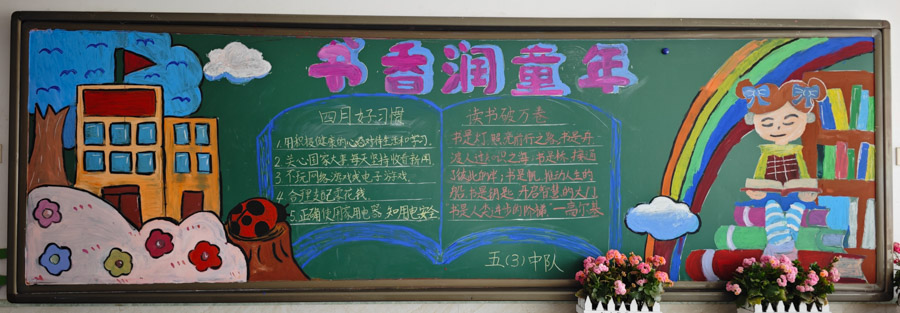 书香润童年
四月好习惯
1.用积极健康的心态对待生活和学习.
2.关心国家大事每天坚持收看新闻
3.不玩网络游戏或电子游戏.
4.合理支配零花钱.
5.正确使用家用电器,知用电安全
读书破万卷
书是灯,照亮前行之路;书是舟,
渡人过知识之海;书是
书是帆,推动人生的
船;书是钥匙,开启智慧的大门
书是人类进步的阶梯"—高尔基
五(3)中队